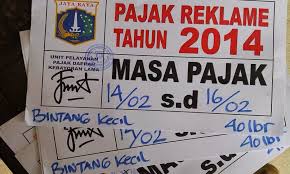 JAYA RAYA
PAJAK REKLAME
TAHUN 2014
UNIT PELAYANAN
PAJAK DAERAH
KEBAYORAN LAMA
MASA PAJAK
14/02 s.d 16/02
BINTANG KECIL 40 lbr
/02 s.d 16/02
BINTANG KECIL 40 lbr